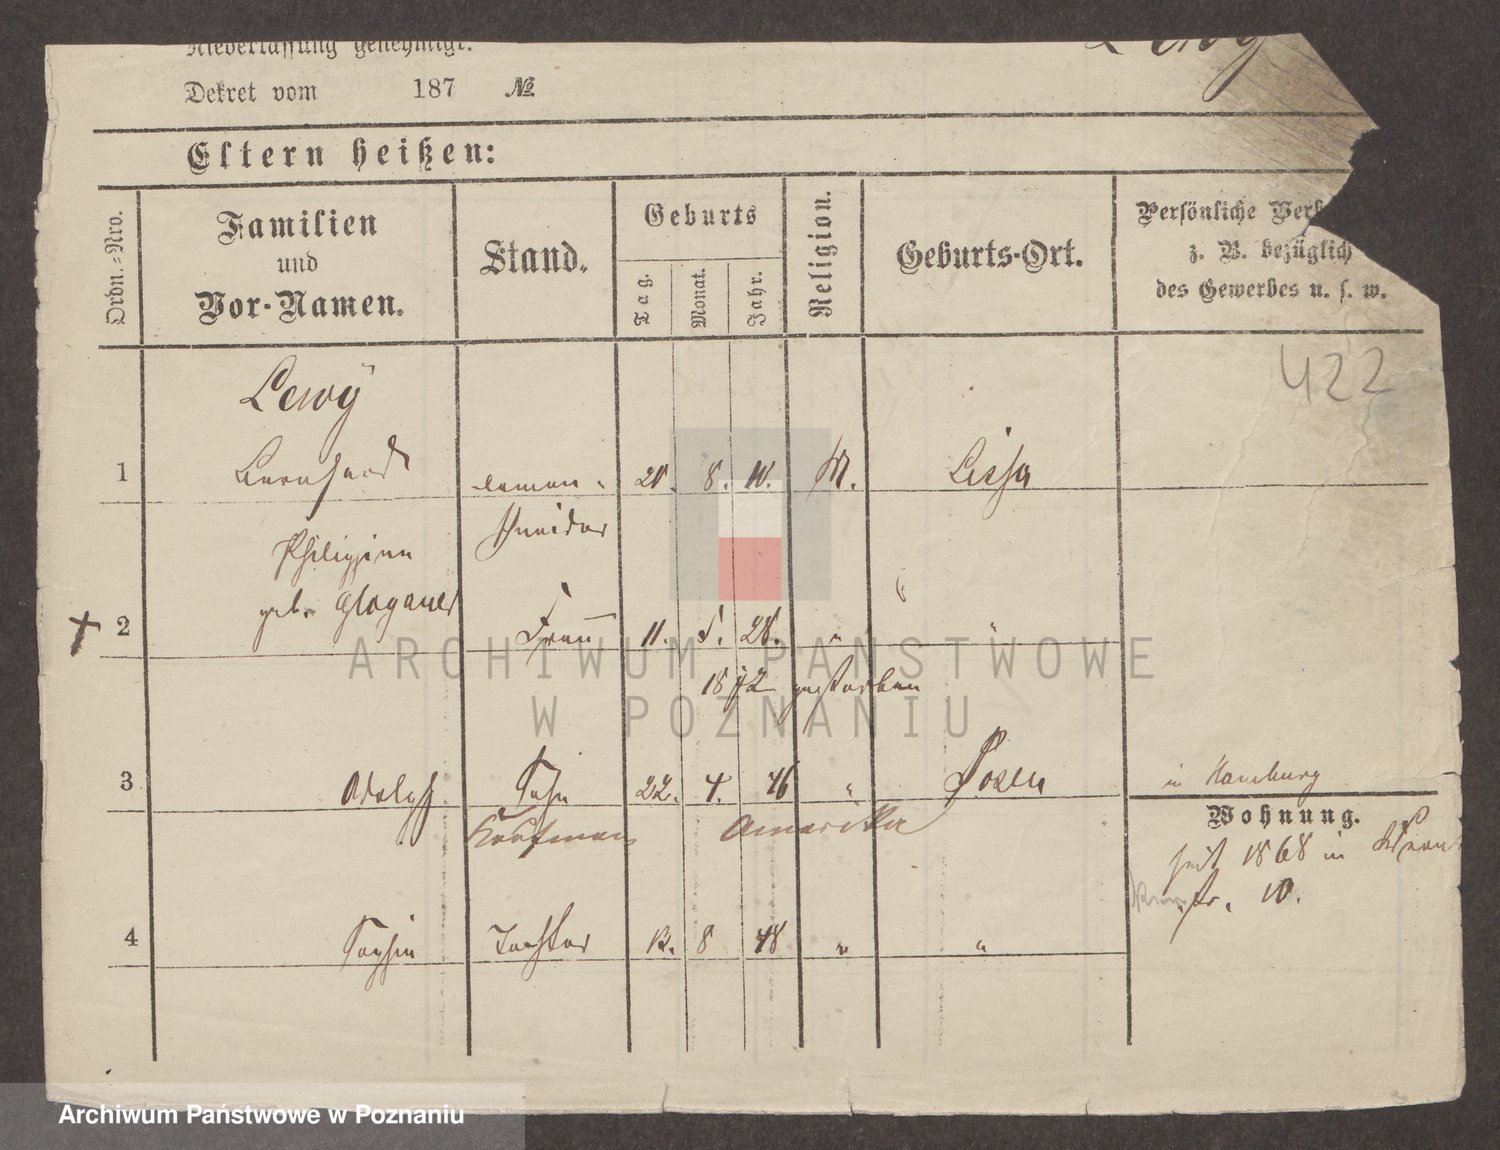 Niederlassung genehmigt.
Dekret vom 187 №
Lewy
Eltern heißen:
Ordn.=Nro.
Familien
und
Vor-Namen.
Stand.
Geburts
Tag.
Monat.
Jahr.
Religion.
Geburts-Ort.
Persönliche
z. B. bezüglich
des Gewerbes u. s. w.
422
Lewÿ
1 Bernhard 8. M. Lissa
Schneider
Philippine
geb. Glogauer
2 Frau 11. 5. 28. " "
1872 gestorben
3 Adolph Sohn 22. 4. 46 " Posen in Hamburg
Kaufmann Amerika
Wohnung.
seit 1868 in
str. 10.
4 Sophie Tochter 12. 8 48 " "
ARCHIWUM PAŃSTWOWE
W POZNANIU
Archiwum Państwowe w Poznaniu